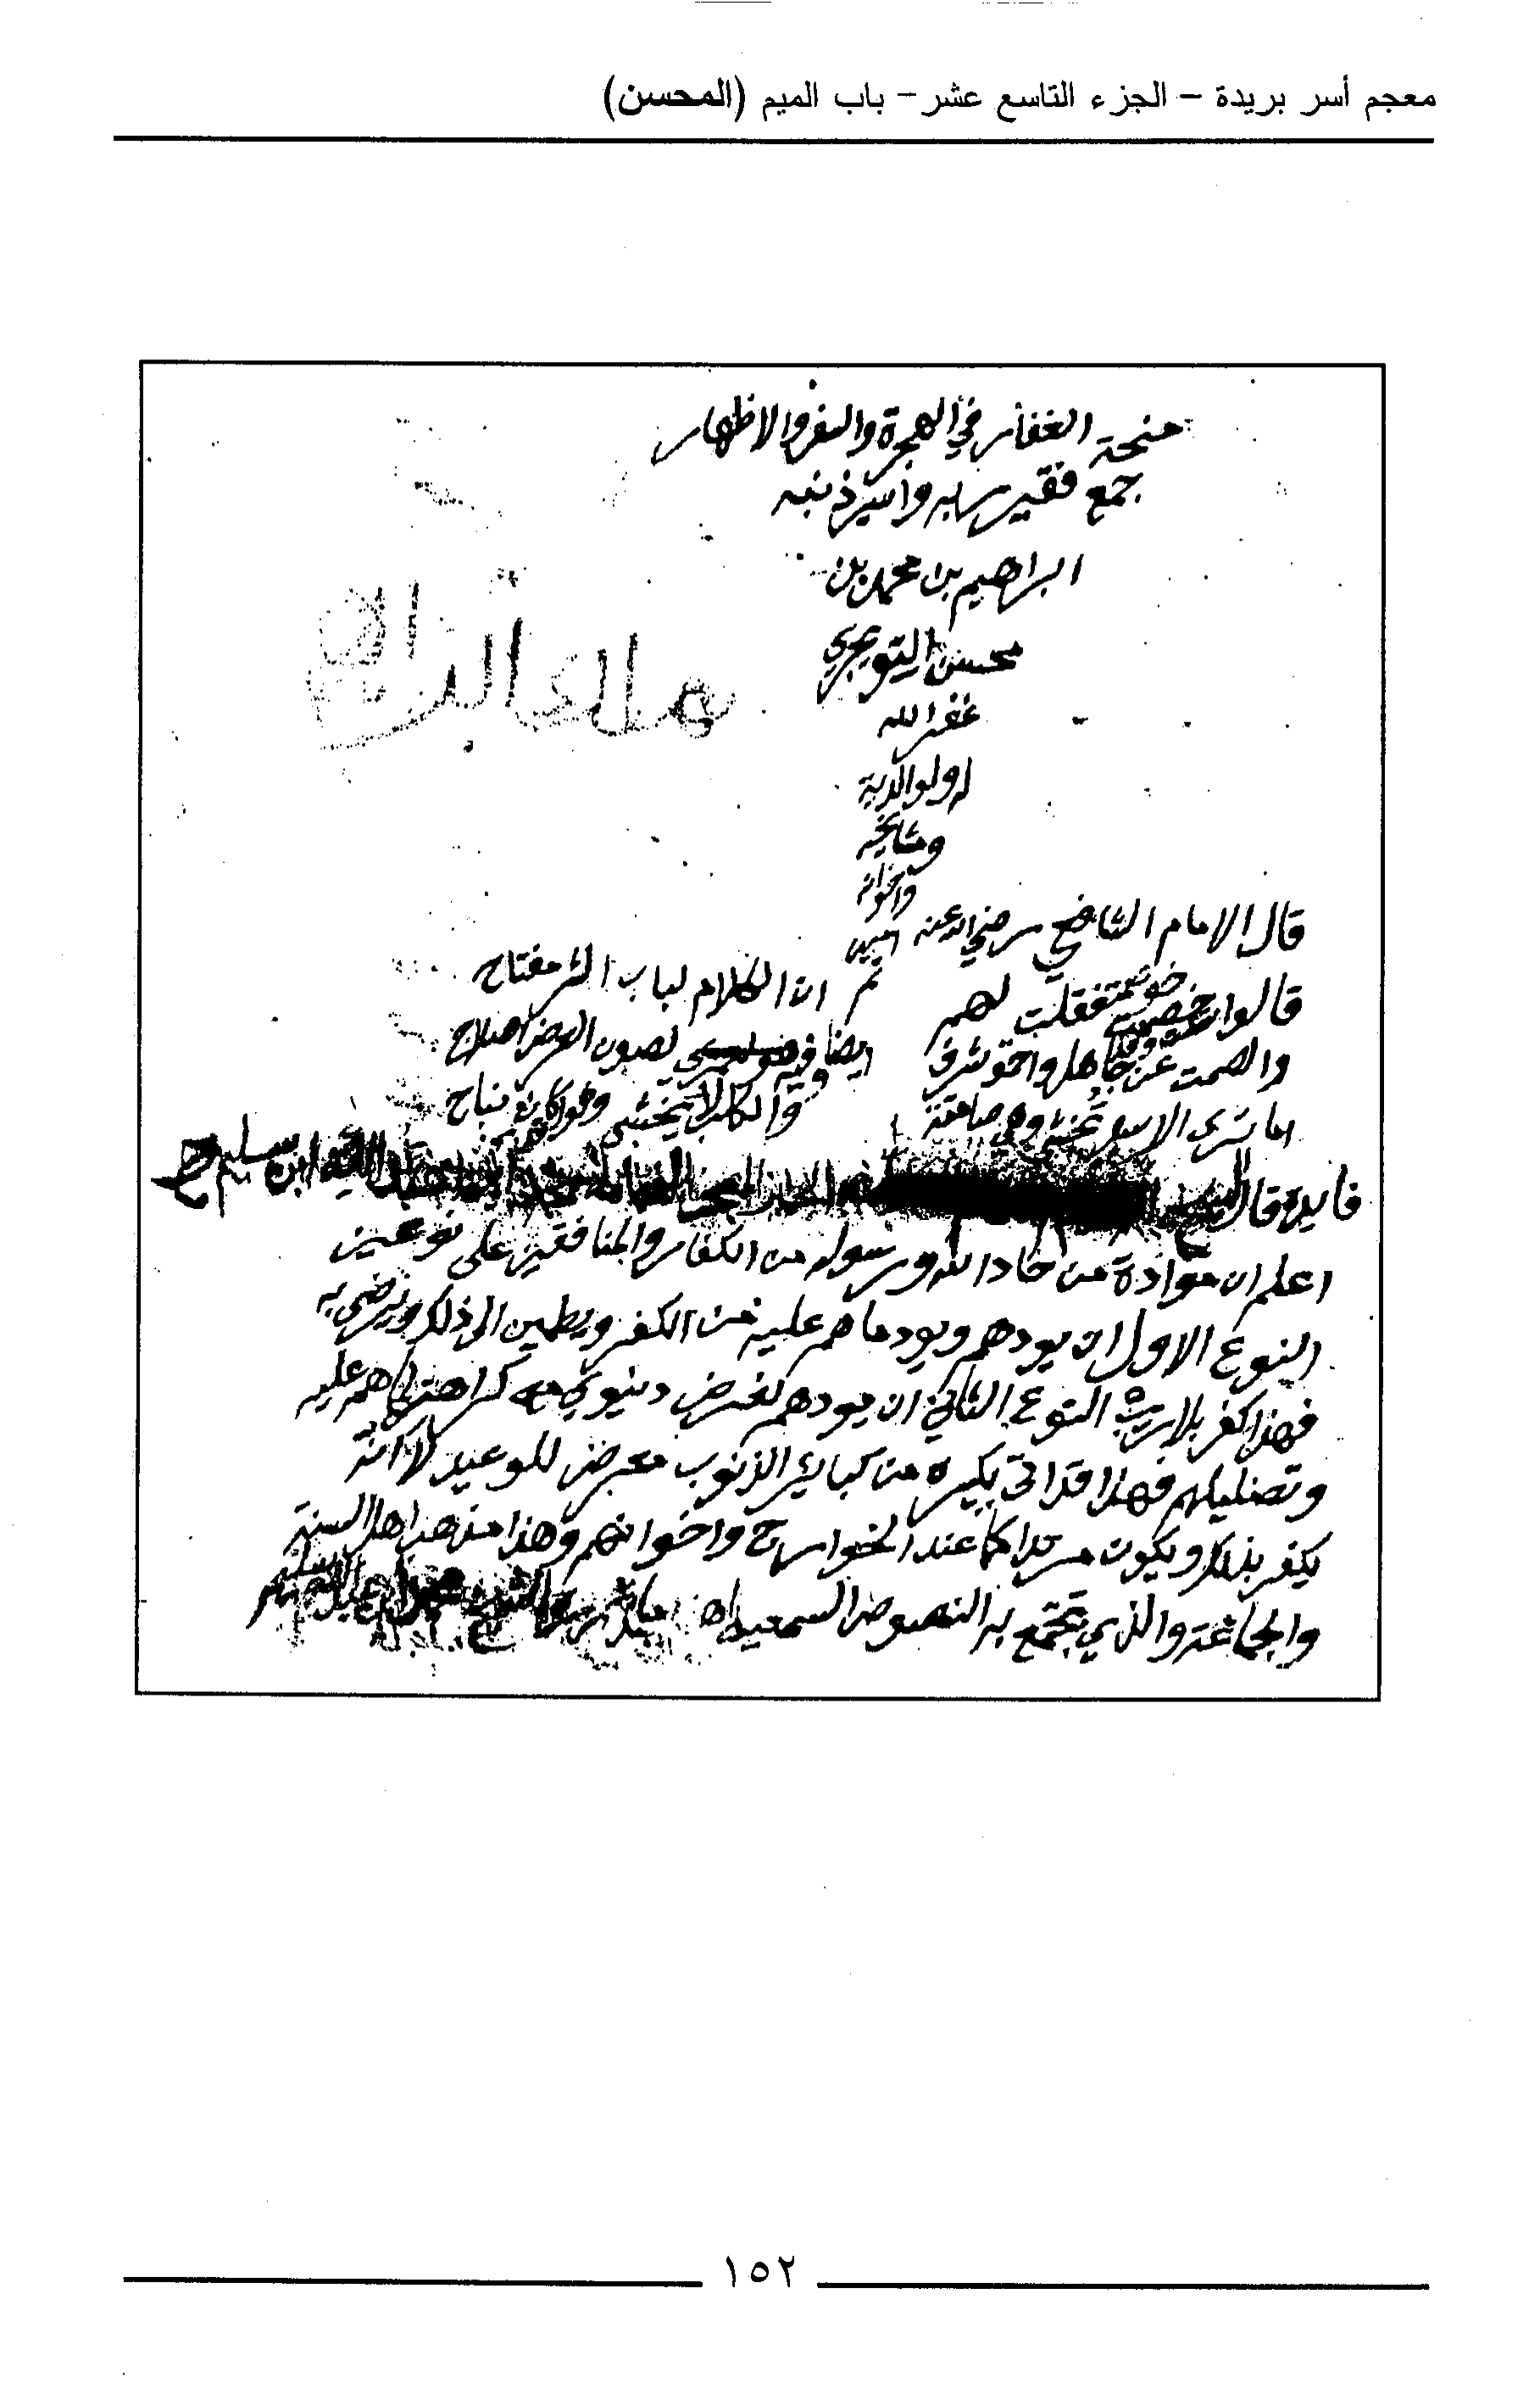 معجم أسر بريدة – الجزء التاسع عشر – باب الميم (المحسن)
منحة الغفار في الهجرة والسفر والاظهار
جمع فقير ربه واسير ذنبه
ابراهيم بن محمد بن
محسن التويجري
غفر الله
له ولوالديه
ومشايخه
واخوانه
امين
قال الامام الشافعي رضي الله عنه
قالوا سكت وقد خوصمت فقلت لهم ان الكلام لباب الشر مفتاح
والصمت عن جاهل واحمق شرف ايضا وفيه لصون العرض اصلاح
اما ترى الاسد تخشى وهي صامتة والكلب لا يخشى وهو نباح
فايدة قال الشيخ ابن سليم
اعلم ان موادة من حاد الله ورسوله من الكفار والمنافقين على نوعين
النوع الاول ان يودهم ويود ما هم عليه من الكفر ويطمين الى ذلك ويرضى به
فهذا كفر بلا ريب النوع الثاني ان يودهم لغرض دنيوي مع كراهته لما هم عليه
وتضليلهم فهذا قد اتى بكبيره من كباير الذنوب معرض للوعيد لا انه
يكفر بذلك ويكون مرتدا كما عند الخوارج واخوانهم وهذا مذهب اهل السنة
والجماعة والذي تجتمع به النصوص السمعية اهـ
١٥٢